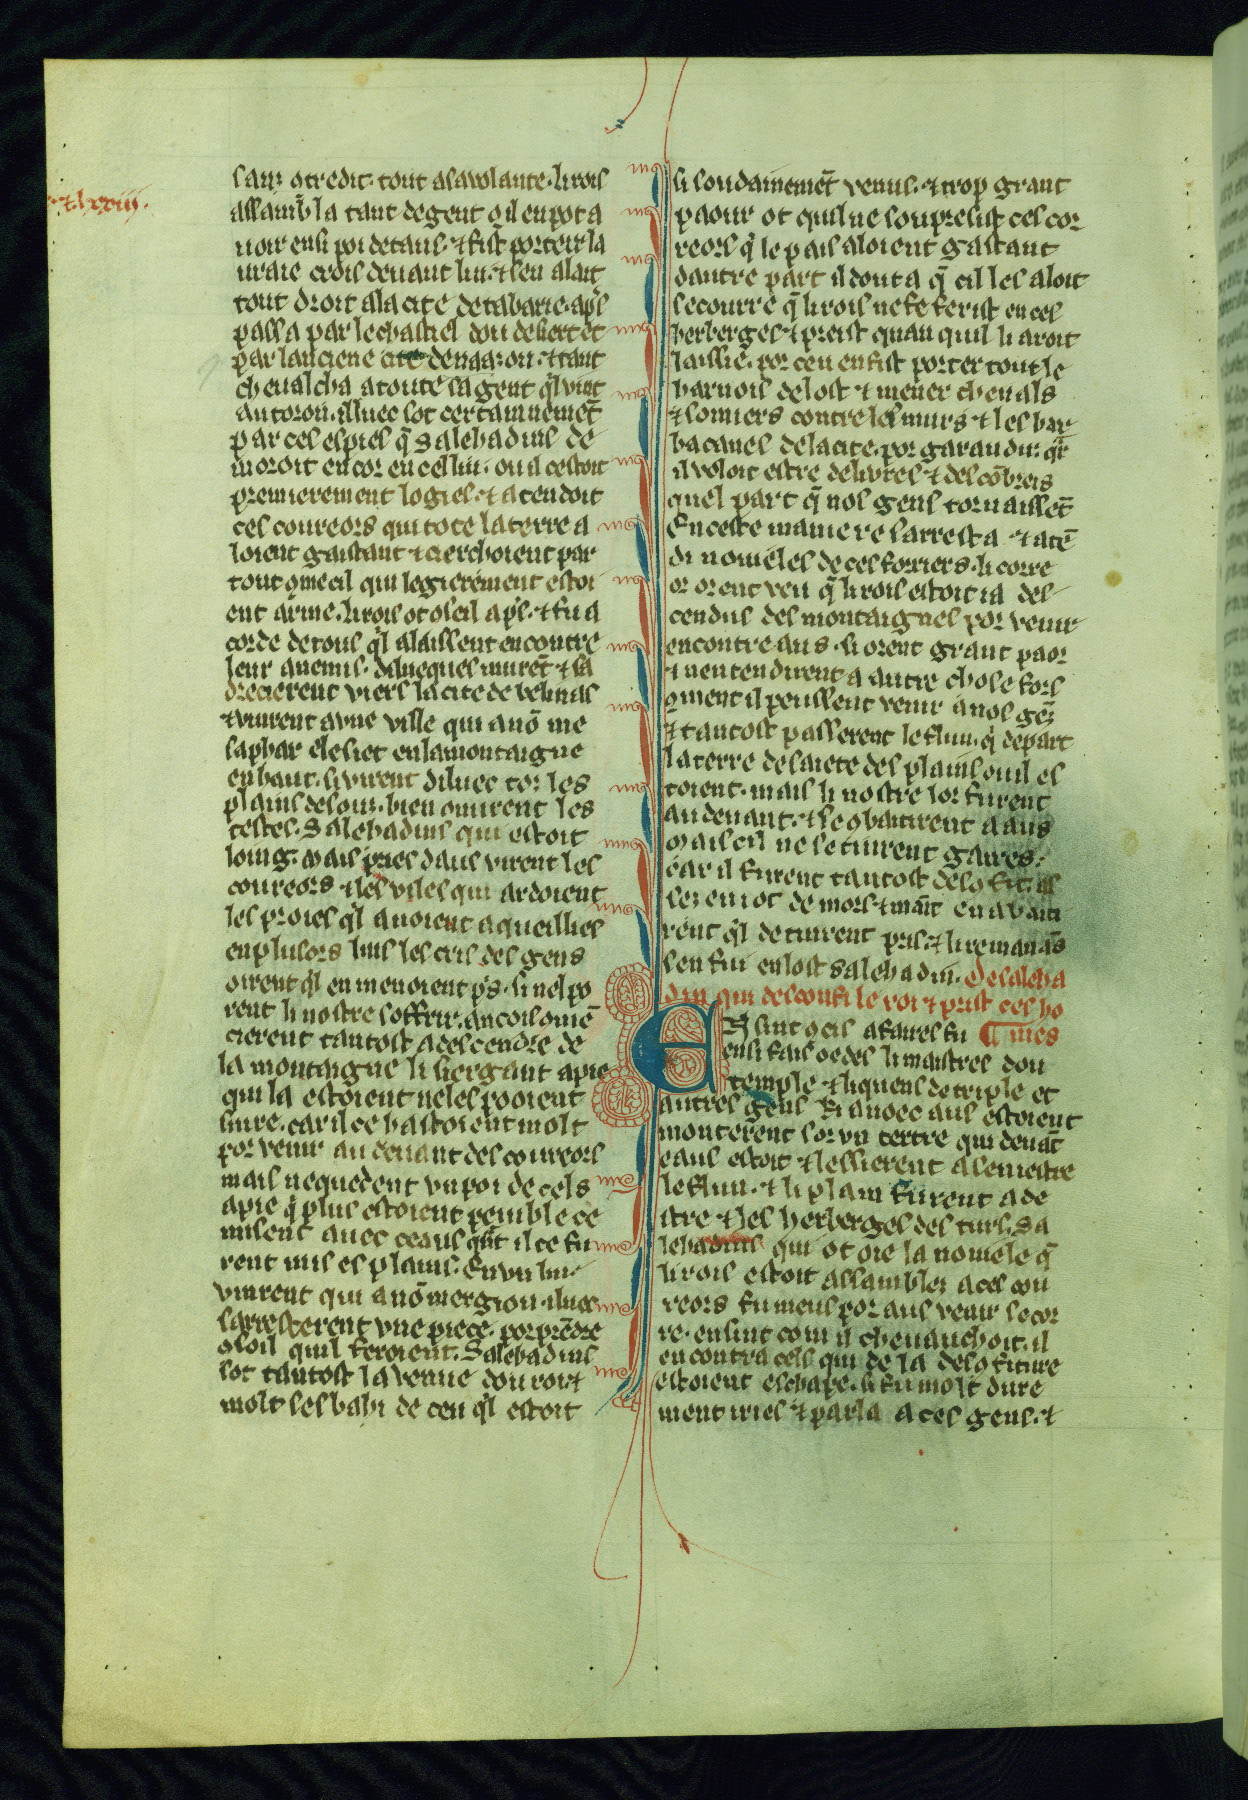 lxxiiij.
sanz otredit. tout a sa volante. li rois
assambla tant de gent q il en pot a
uoir en si poi de tans. ⁊ fist porteir la
uraie crois deuant lui. ⁊ sen alait
tout droit a la cite de tabarie. apͤs
passa par le chastiel dou
par lanciene cite de naazon. ⁊ tant
cheualcha a toute sa gent ql vint
au toron. illuec sot certainnemēt
par ces espies q̄ Salehadins de
moroit encor en cel liu. ou il cestoit
premierement logies. ⁊ atendoit
ces coureors qui tote la terre a
loient gaistant ⁊ cierchoient par
tout 9me cil qui legierement estoi
ent arme. li rois ot oseil apͤs. ⁊ fu a
corde de tous ql alaissent encontre
leur anemis. diluecques murēt ⁊ sa
drecierent viers la cite de belinas
⁊ vinrent a vne ville qui a nō me
saphar ele siet en la montaigne
en haut. si virent diluec tos les
plains desous. bien connurent les
testes. Salehadins qui estoit
loing. Mais pries daus virent les
coureors ⁊ les viles qui ardoient
les proies ql auoient aqueillies
en plusors lius les cris des gens
oirent ql en menoient pͥs. si nel po
rent li nostre soffrir. ancois omē
cierent tantost a descendre de
la montaigne li siergant a pie
qui la estoient nes les pooient
siure. car il ce hastoient molt
por venir au deuant des coureors
mais nequedent vn poi de cels
a pie q̄ plus estoient penible ce
misent auec ceaus qn̄t il ce fu
rent mis es plains. En vn liu
vinrent qui a nō mergion. iluec
sarresterent vne piece. por prēdre
osoil quil feroient. Salehadins
sot tantost la venue dou roi ⁊
molt ses bahi de ceu ql estoit
si soudainemēt venus. ⁊ trop grant
paour ot quil ne soupresist ces cor
reors q̄ le pais aloient gastant
dautre part il douta q̄ cil les aloit
secourre q̄ li rois ne se ferist en ces
herberges ⁊ preist quan quil li aroit
laissie. por ceu en fist porter tout le
harnois de lost ⁊ mener cheuals
⁊ somiers contre les murs ⁊ les bar
bacanes de la cite. por garandir. qr
il voloit estre deliures ⁊ descōbreis
quel part q̄ nos gens tornaissēt
En ceste maniere sarresta ⁊ atē
di nouueles de ces forriers. li corre
or orent veu q̄ li rois estoit ia des
cendus des montaignes por venir
encontre aus. si orent grant paor
⁊ nentendirent a autre chose fors
9ment il peussent venir a nos gēz
⁊ tantost passerent le flun. q̄ depart
la terre de saiete des plains ou il es
toient. mais li nostre lor furent
au deuant. ⁊ se combatirent a aus
Mais cil ne se tinrent gaires.
car il furent tantost desofit.
lez en i ot de mors ⁊ maīt en abati
rent ql detinrent pris. ⁊ li remanās
sen fui en lost salehadin. De saleha
din qui desconfi le roi ⁊ prist ces ho
¶ mes
Ensint 9 cis afaires fu
ensi fais oedes li maistres dou
temple ⁊ li queus de triple et
autres gens q̄ auoec aus estoient
monterent sor vn tertre qui deuāt
eaus estoit ⁊ lessierent a senestre
le flun. ⁊ li plain furent a de
stre ⁊ les herberges des turs. Sa
lehadins qui ot oie la nouele q̄
li rois estoit assamblez a ces cou
reors fu meus por aus venir secor
re. ensint com il cheuauchoit. il
encontra cels qui de la desofiture
estoient eschape. si fu molt dure
ment iries ⁊ parla a ces gens. ⁊